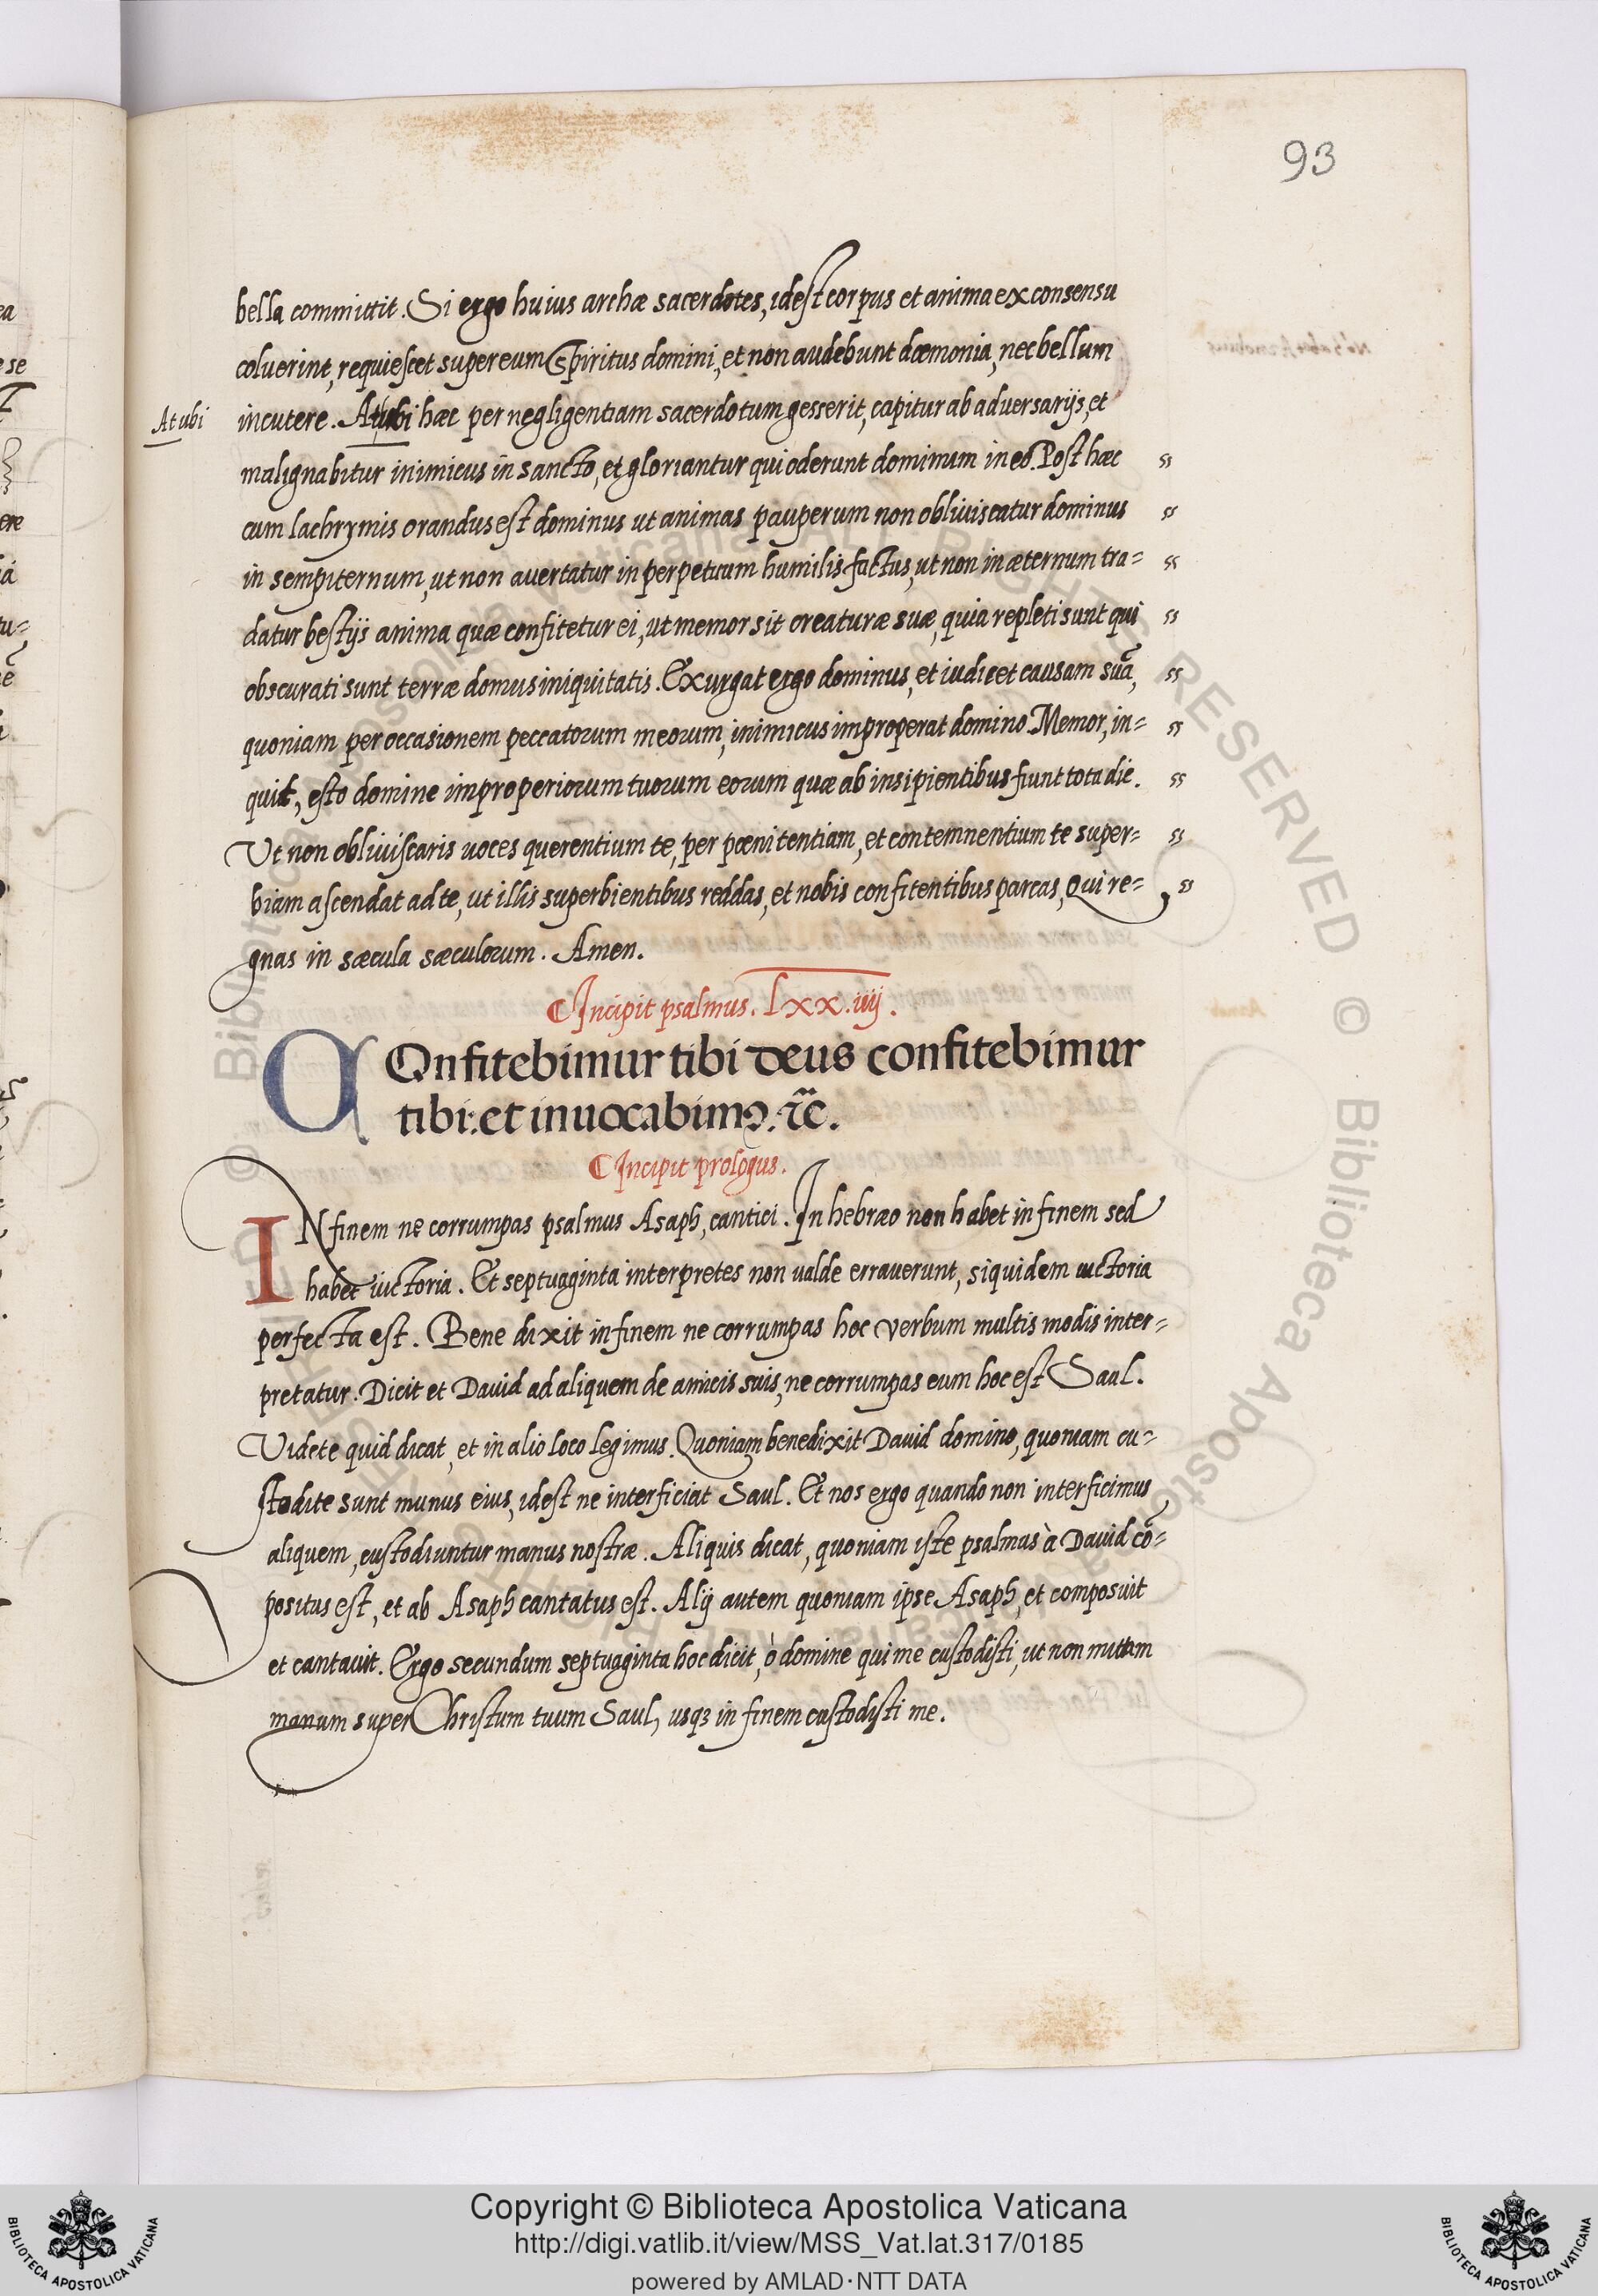 93
bella committit. Si ergo huius archæ sacerdotes, idest corpus et anima ex consensu
coluerint, requiescet super eum Spiritus domini, et non audebunt dæmonia, nec bellum
At ubi
incutere. At ubi hæc per negligentiam sacerdotum gesserit, capitur ab adversarijs, et
malignabitur inimicus in sancto, et gloriantur qui oderunt dominum in eo. Post hæc "
cum lachrymis orandus est dominus ut animas pauperum non obliuiscatur dominus "
in sempiternum, ut non auertatur in perpetuum humilis factus, ut non in æternum tra= "
datur bestijs anima quæ confitetur ei, ut memor sit creaturæ suæ, quia repleti sunt qui "
obscurati sunt terræ domus iniquitatis. Exurgat ergo dominus, et iudicet causam suã, "
quoniam per occasionem peccatorum meorum, inimicus improperat domino. Memor, in= "
quit, esto domine improperiorum tuorum eorum quæ ab insipientibus fiunt tota die. "
Ut non obliuiscaris uoces querentium te, per pœnitentiam, et contemnentium te super= "
biam ascendat ad te, ut illis superbientibus reddas, et nobis confitentibus parcas, Qui re= "
gnas in sæcula sæculorum. Amen.
Incipit psalmus. Lxx.iiij.
COnfitebimur tibi deus confitebimur
tibi: et inuocabimꝰ. ⁊c̃.
Incipit prologus.
IN finem ne corrumpas psalmus Asaph, cantici. In hebræo non habet in finem sed
habet uictoria. Et septuaginta interpretes non valde erraverunt, siquidem uictoria
perfecta est. Bene dixit in finem ne corrumpas hoc verbum multis modis inter=
pretatur. Dicit et David ad aliquem de amicis suis, ne corrumpas eum hoc est Saul.
Videte quid dicat, et in alio loco legimus. Quoniam benedixit David domino, quoniam cu=
stodite sunt munus eius, idest ne interficiat Saul. Et nos ergo quando non interficimus
aliquem, custodiuntur manus nostræ. Aliquis dicat, quoniam iste psalmus à David cõ=
positus est, et ab Asaph cantatus est. Alij autem quoniam ipse Asaph, et composuit
et cantauit. Ergo secundum septuaginta hoc dicit, ò domine qui me custodisti, ut non mittam
manum super Christum tuum Saul, usqꝫ in finem custodisti me.
Copyright © Biblioteca Apostolica Vaticana
http://digi.vatlib.it/view/MSS_Vat.lat.317/0185
powered by AMLAD·NTT DATA
BIBLIOTECA APOSTOLICA VATICANA
BIBLIOTECA APOSTOLICA VATICANA